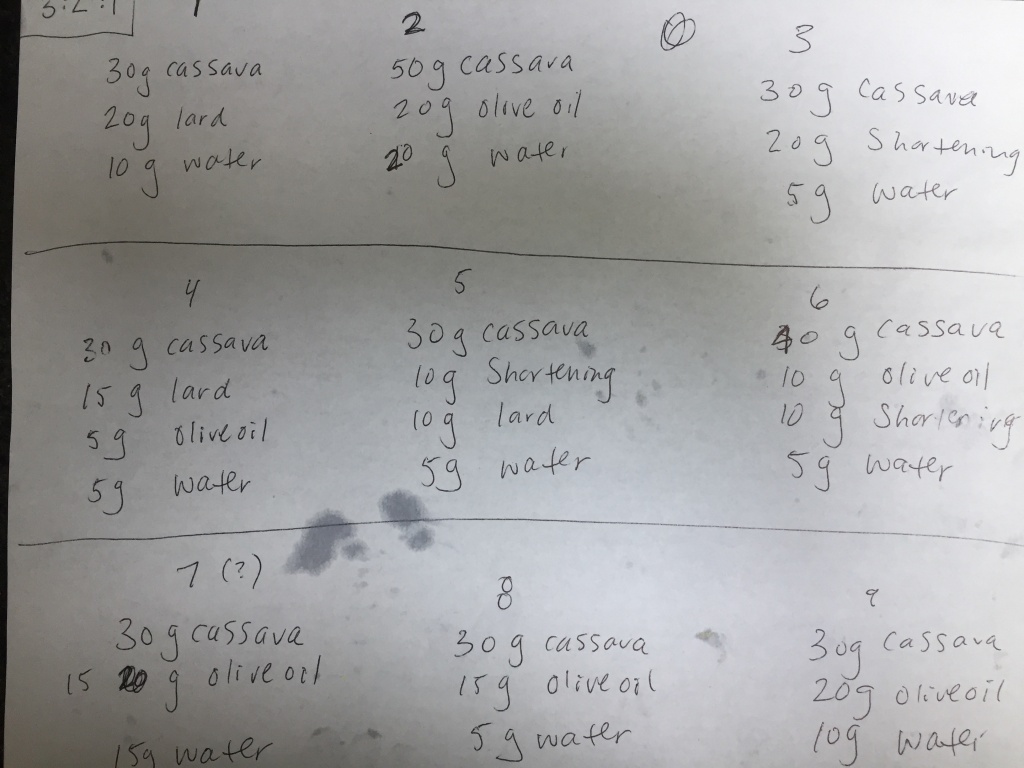 3:2:1
1
30g cassava
20g lard
10 g water
2
50g cassava
20g olive oil
20 g water
3
30g cassava
20g Shortening
5g water
4
30 g cassava
15 g lard
5g olive oil
5g water
5
30g cassava
10g Shortening
10g lard
5g water
6
40 g cassava
10 g olive oil
10 g Shortening
5g water
7 (?)
30g cassava
15 20 g olive oil
15g water
8
30g cassava
15g olive oil
5g water
9
30g cassava
20g olive oil
10g water